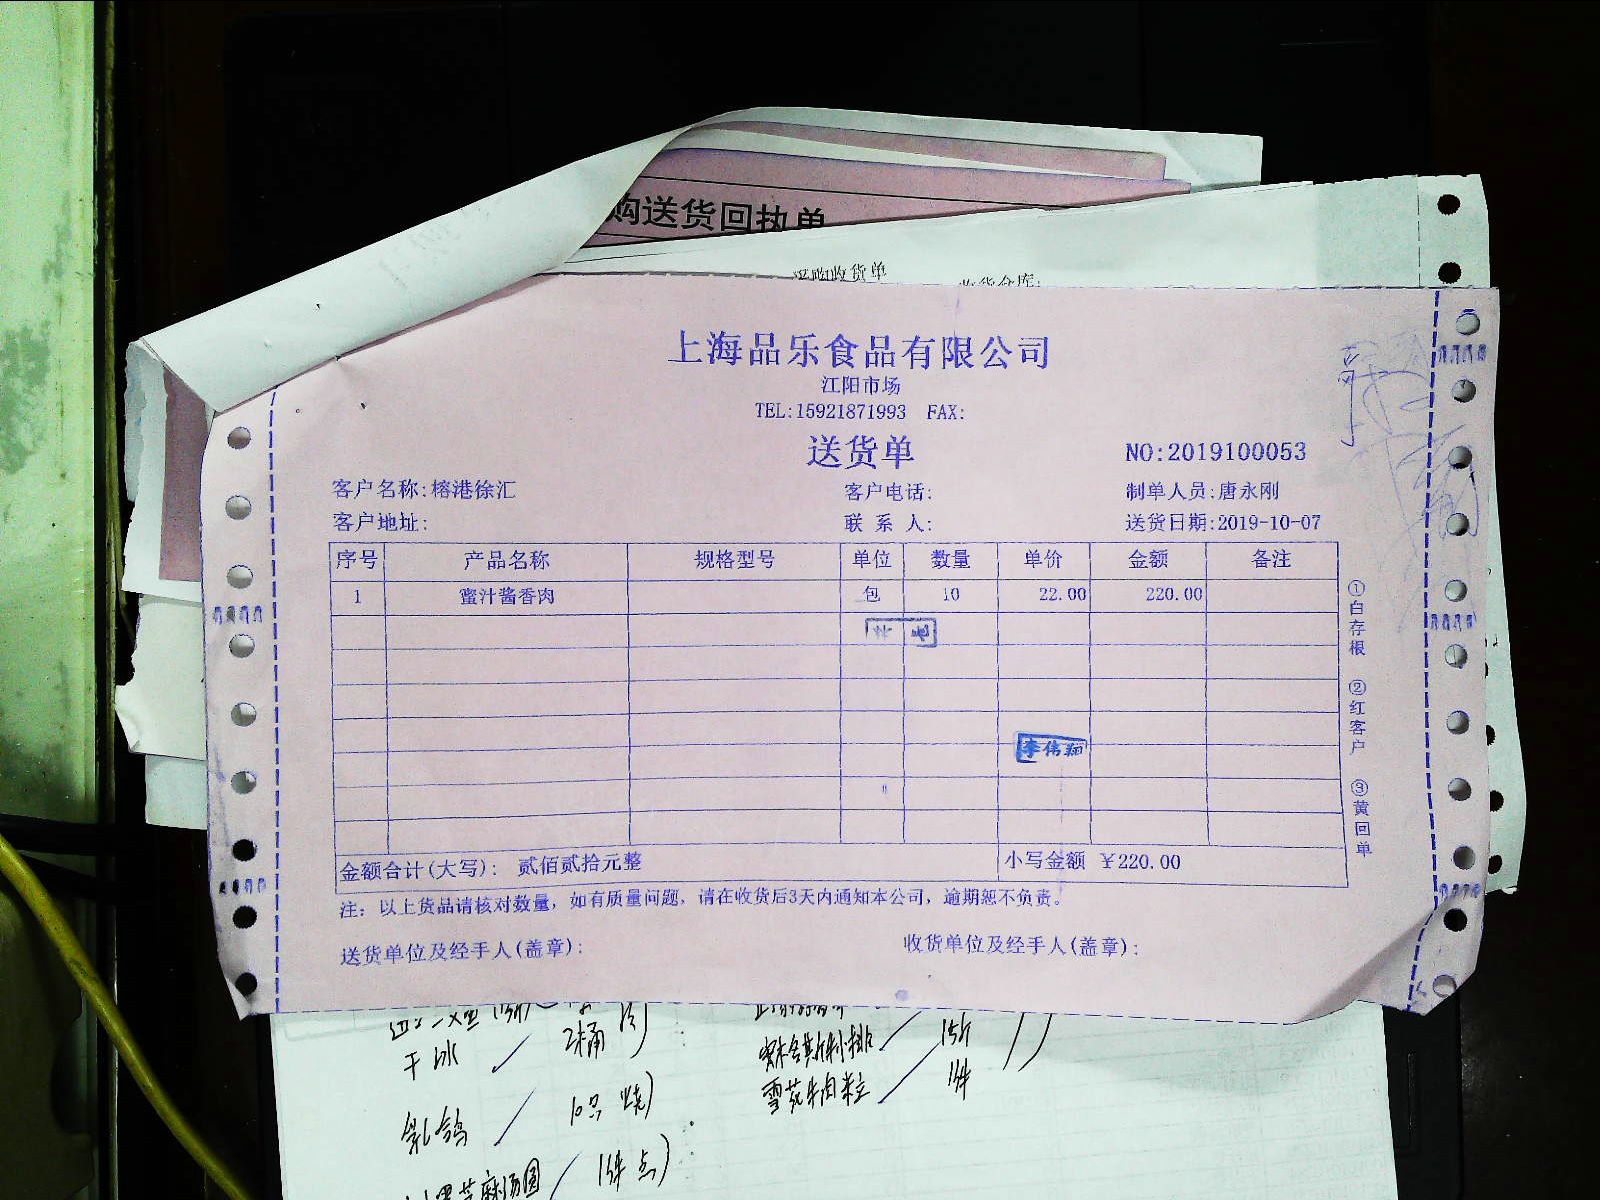 购送货回执单
采购收货单
收货仓库:
上海品乐食品有限公司
江阳市场
TEL:15921871993 FAX:
送货单
NO:2019100053
客户名称:榕港徐汇 客户电话: 制单人员:唐永刚
客户地址: 联系人: 送货日期:2019-10-07
序号 产品名称 规格型号 单位 数量 单价 金额 备注
1 蜜汁酱香肉 包 10 22.00 220.00
李伟翔
金额合计(大写): 贰佰贰拾元整 小写金额 ¥220.00
注: 以上货品请核对数量, 如有质量问题, 请在收货后3天内通知本公司, 逾期恕不负责。
送货单位及经手人(盖章): 收货单位及经手人(盖章):
①白存根 ②红客户 ③黄回单
干冰 2桶
15斤
雪花牛肉粒 1件
乳鸽 10只 烧)
芝麻汤圆 1件 点)